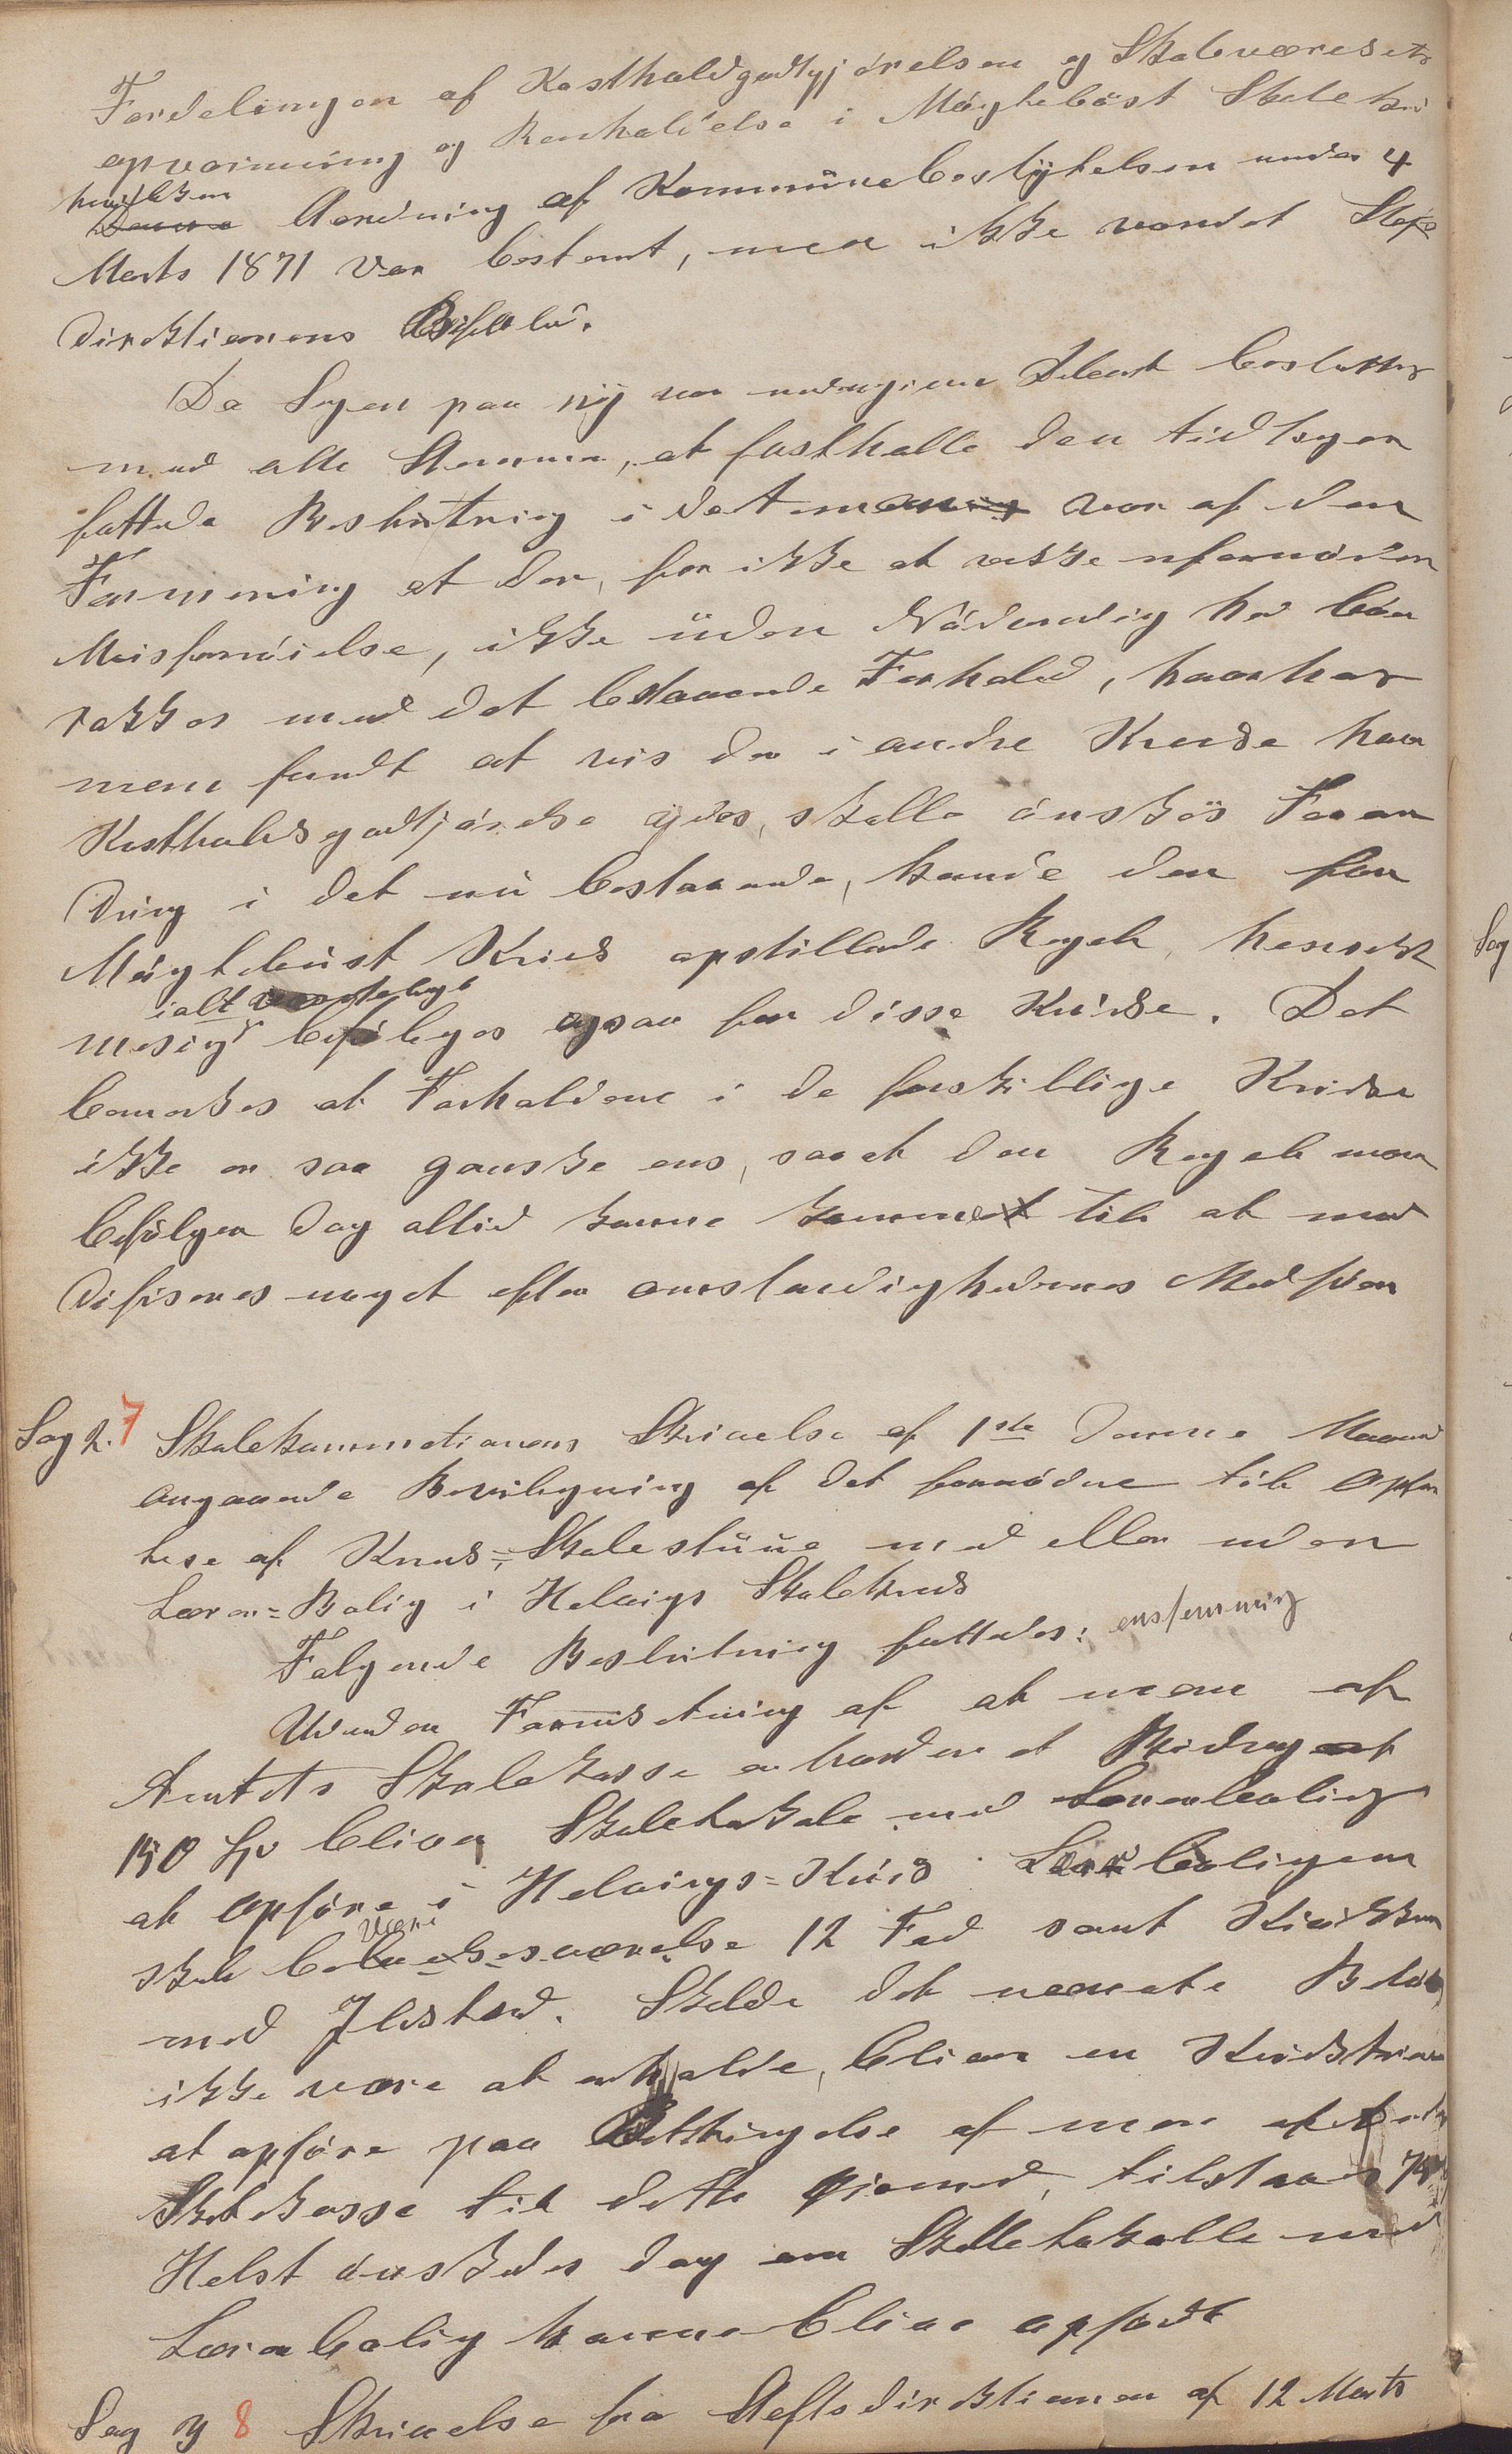 Fordelingen af Kostholdgodtgjörelsen og Skoleværesets
opvarming og Renholdelse i Möghelböst Skolekrds
hvilken
Denne Aordning af Kommünebestÿhelsen under 4
Marts 1871 var bestemt, men ikke vondet Stefs
direktionens Bifald.
Da Sagen paa nÿ var undergiven Debat besluttes
med alle Stemmer, at fastholde den tidligere
fattede Beslutning i det man var af den
Formening at der, for ikke at vække ufornöden
Misfornöielse, ikke üden Nödvendighed bör
rökkes med det bestaaende Forhold, hvorhos
man fandt at vis der i andre Kredse hvor
Kostholdsgodtjörelse ÿdes, skulle önskös Foran
dring i det nü bestaaende, kunde den for
Mögtebüst Krids opstillede Regel, hensigt
ialt væsteligt
mesigt befölges ogsaa for disse Kridse. Det
bemerkes at Forholdene i de forskillige Kridse
ikke er saa ganske ens, saa at den Regel man
befölger dog altid kunne kommet til at mo
difiseres noget efter omstendighedernes Medför
Sag 2. 7 Skolekommetionens Skrivelse af 1ste denne Maaned
angaaende Bevilgning af det fornödne til Opför
lse af Krids-Skolestüüe med eller uden
Lærer=Bolig i Helvigs Skolekreds
Følgende Beslutning fattedes: enstemmig
Under Forudsetning af at man af
Amtets Skolekasse erholder et Bidrag af
150 Sp bliver Skolelokale med Lærerbolig
at opföre i Helvigs=Krids Lærerboligen
være
skal beboelsesværelse 12 Fod samt Kiøkken
med Ildsted. Skulde det nevnte Belöb
ikke være at erholde, bliver en Kridsstue
at opföre paa Betingelse af man af Amtets
Skolekasse til dette Øiemed, tilstaaes 75
Helst önskedes dog om Skollelokalle med
Lærerbolig kunne blive opfördt
Sag 3 8 Skrivelse fra Steftsdirektionen af 12 Marts
Sag